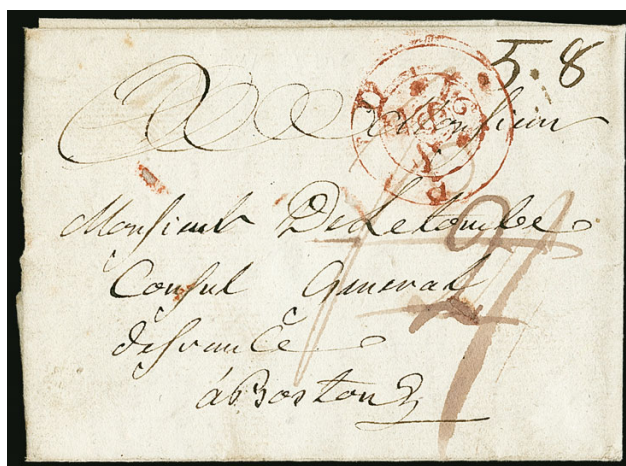 5.8
A Monsieur
Monsieur De Letombe
Consul General
de france
à Boston